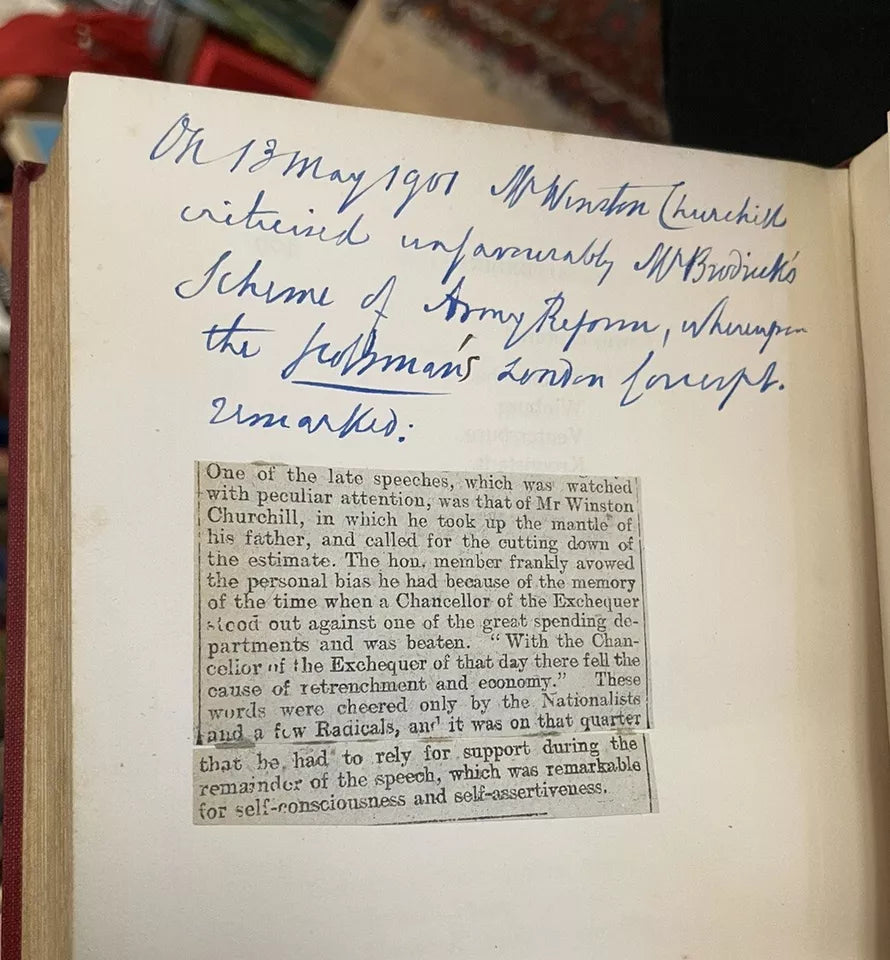 On 13 May 1901 Mr Winston Churchill
criticised unfavourably Mr Brodrick's
Scheme of Army Reform, whereupon
the Scotsman's London Correspt.
remarked:
One of the late speeches, which was watched
with peculiar attention, was that of Mr Winston
Churchill, in which he took up the mantle of
his father, and called for the cutting down of
the estimate. The hon. member frankly avowed
the personal bias he had because of the memory
of the time when a Chancellor of the Exchequer
stood out against one of the great spending de-
partments and was beaten. "With the Chan-
cellor of the Exchequer of that day there fell the
cause of retrenchment and economy." These
words were cheered only by the Nationalists
and a few Radicals, and it was on that quarter
that he had to rely for support during the
remainder of the speech, which was remarkable
for self-consciousness and self-assertiveness.